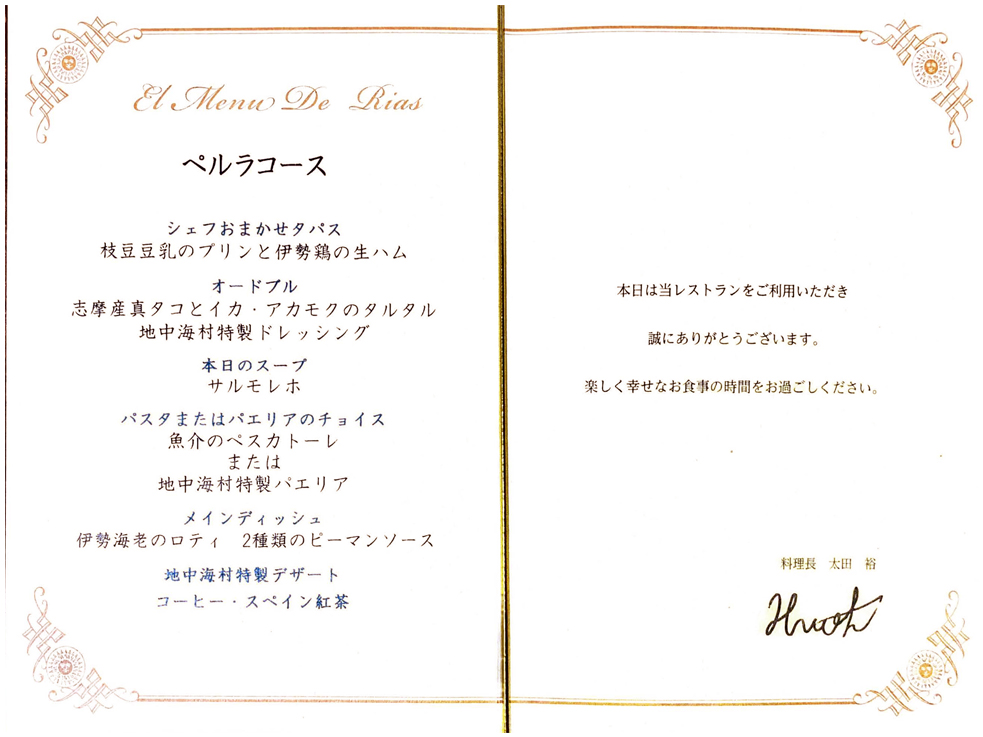 El Menu De Rias
ペルラコース
シェフおまかせタパス
枝豆豆乳のプリンと伊勢鶏の生ハム
オードブル
志摩産真タコとイカ・アカモクのタルタル
地中海村特製ドレッシング
本日のスープ
サルモレホ
パスタまたはパエリアのチョイス
魚介のペスカトーレ
または
地中海村特製パエリア
メインディッシュ
伊勢海老のロティ　2種類のピーマンソース
地中海村特製デザート
コーヒー・スペイン紅茶
本日は当レストランをご利用いただき
誠にありがとうございます。
楽しく幸せなお食事の時間をお過ごしください。
料理長　太田　裕